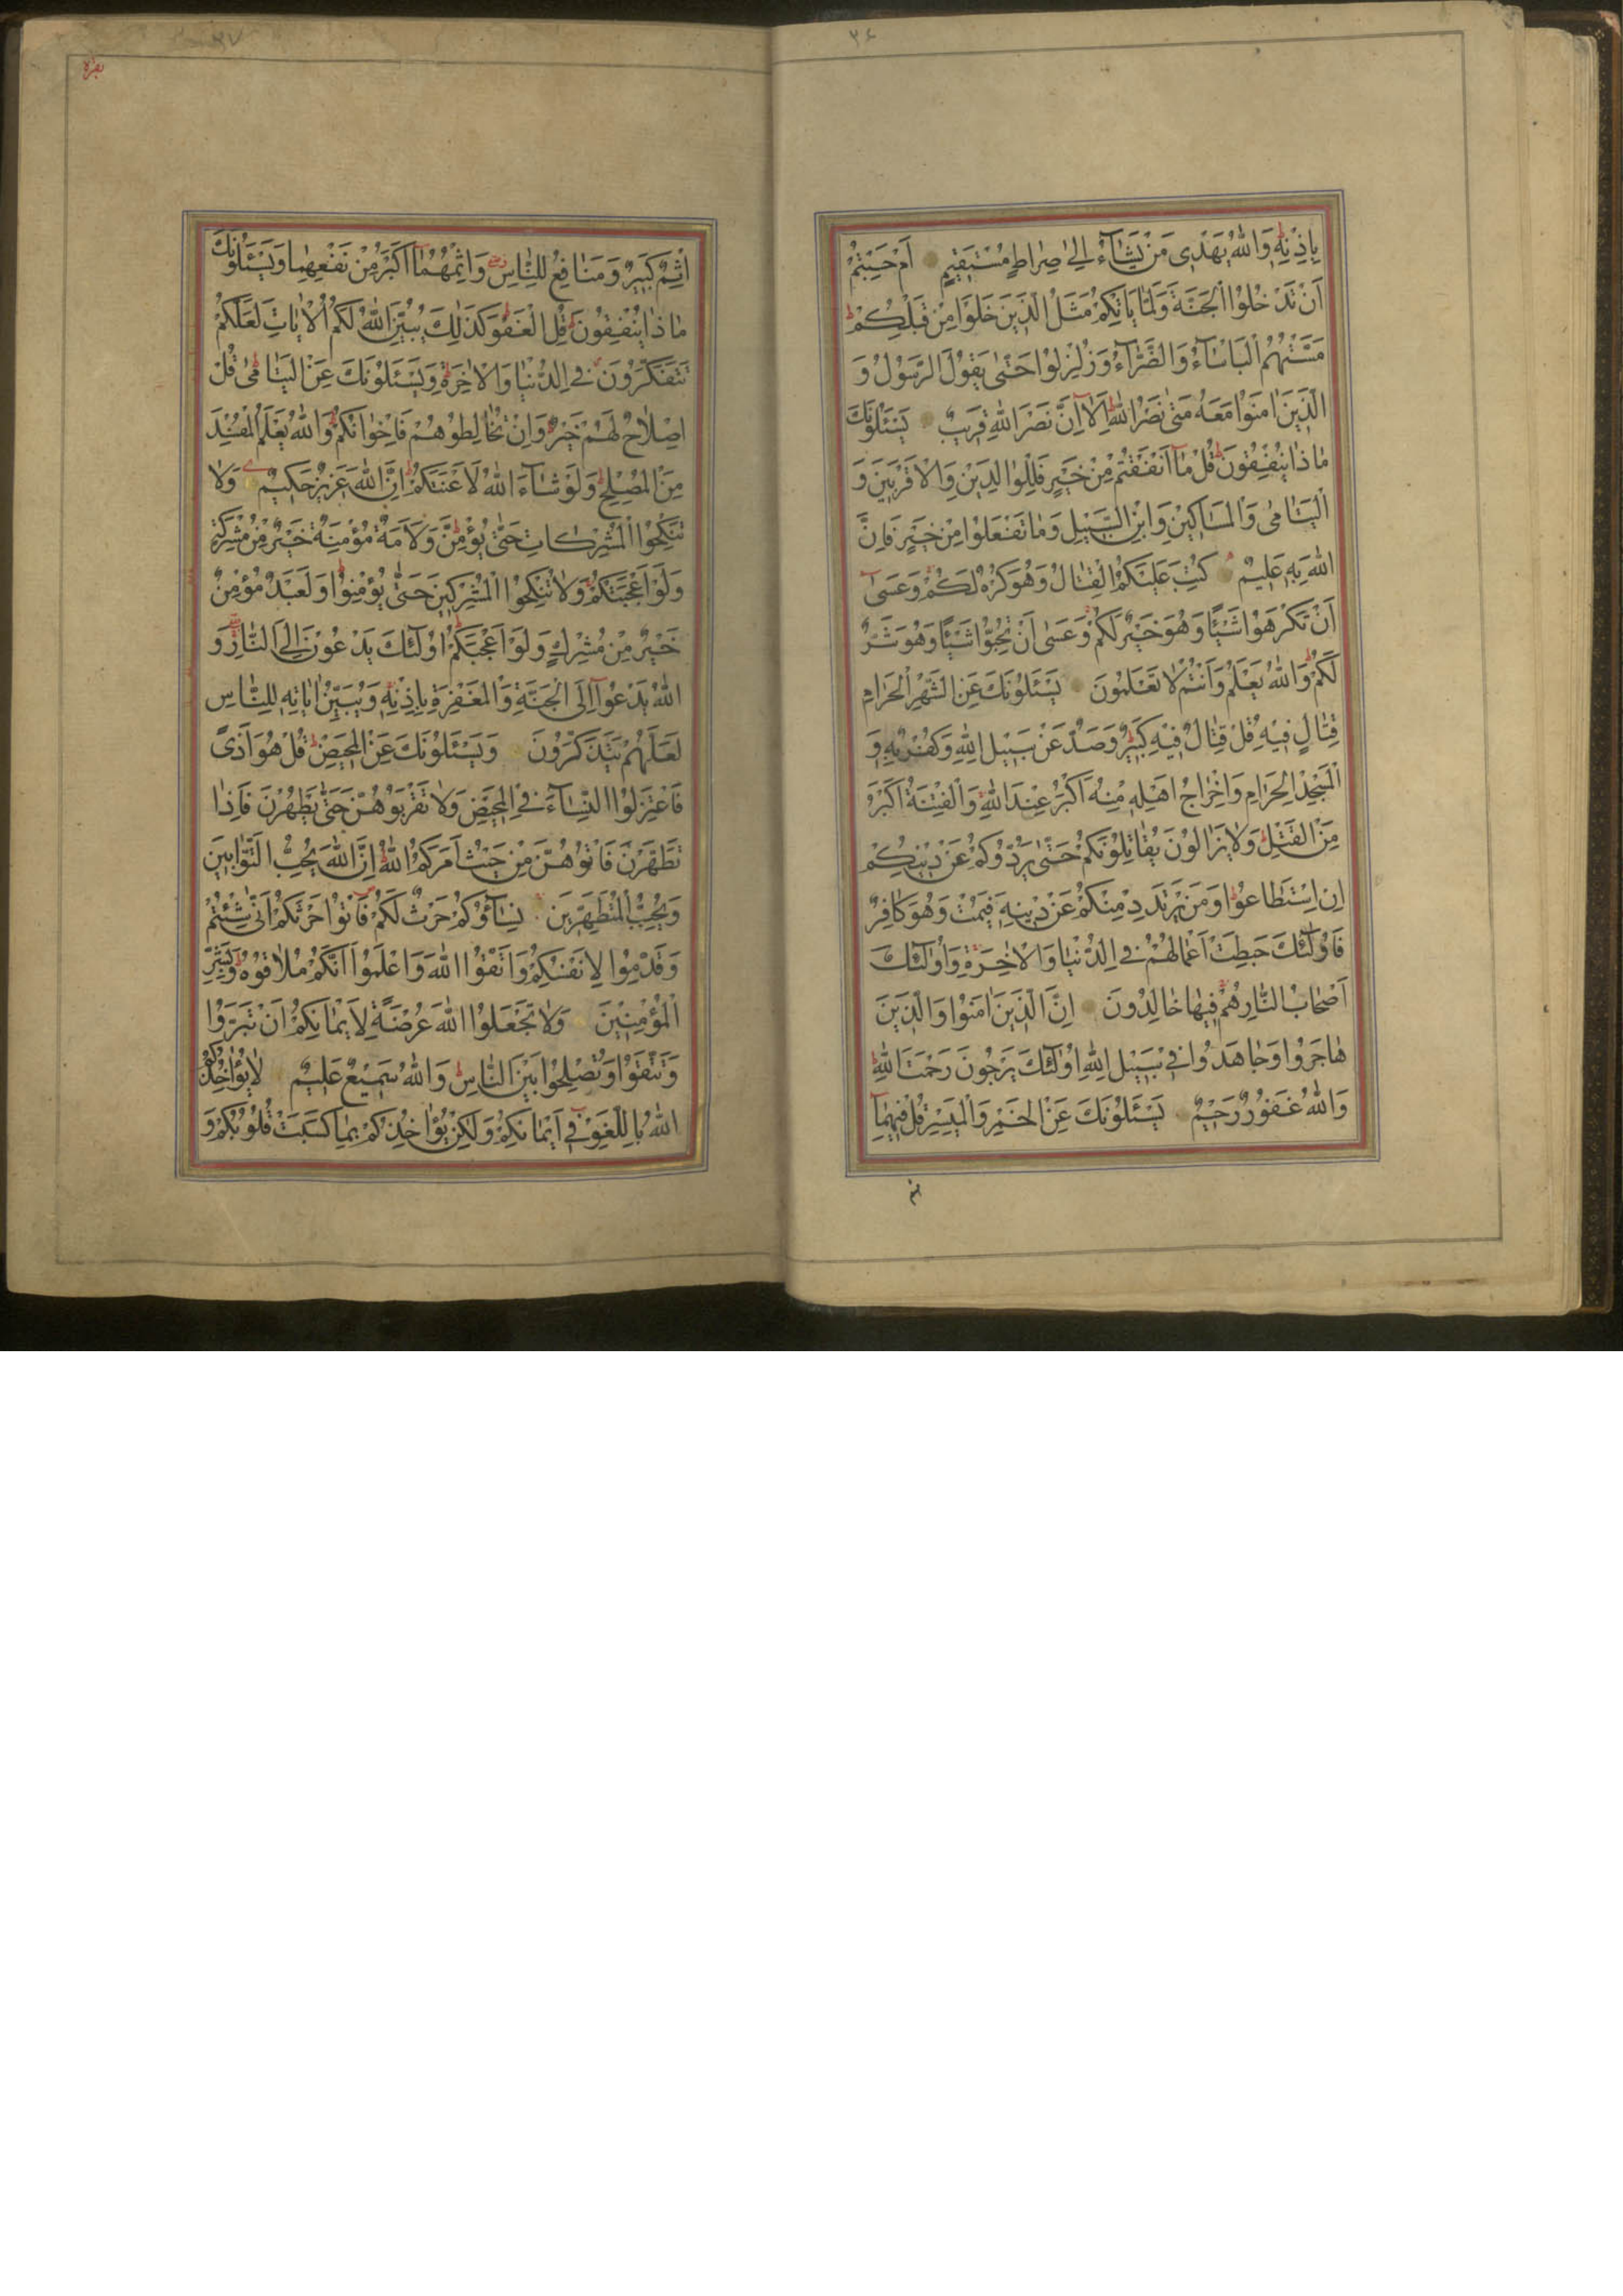 ٣٦
بِاِذْنِهٖ وَاللّٰهُ يَهْدٖى مَنْ يَشَاۤءُ اِلٰى صِرَاطٍ مُسْتَقٖيمٍ اَمْ حَسِبْتُمْ
اَنْ تَدْخُلُوا الْجَنَّةَ وَلَمَّا يَاْتِكُمْ مَثَلُ الَّذٖينَ خَلَوْا مِنْ قَبْلِكُمْ
مَسَّتْهُمُ الْبَاْسَاۤءُ وَالضَّرَّاۤءُ وَزُلْزِلُوا حَتّٰى يَقُولَ الرَّسُولُ وَ
الَّذٖينَ اٰمَنُوا مَعَهُ مَتٰى نَصْرُ اللّٰهِ اَلَاۤ اِنَّ نَصْرَ اللّٰهِ قَرٖيبٌ يَسْئَلُونَكَ
مَاذَا يُنْفِقُونَ قُلْ مَاۤ اَنْفَقْتُمْ مِنْ خَيْرٍ فَلِلْوَالِدَيْنِ وَالْاَقْرَبٖينَ وَ
الْيَتَامٰى وَالْمَسَاكٖينِ وَابْنِ السَّبٖيلِ وَمَا تَفْعَلُوا مِنْ خَيْرٍ فَاِنَّ
اللّٰهَ بِهٖ عَلٖيمٌ كُتِبَ عَلَيْكُمُ الْقِتَالُ وَهُوَ كُرْهٌ لَكُمْ وَعَسٰىۤ
اَنْ تَكْرَهُوا شَيْئًا وَهُوَ خَيْرٌ لَكُمْ وَعَسٰىۤ اَنْ تُحِبُّوا شَيْئًا وَهُوَ شَرٌّ
لَكُمْ وَاللّٰهُ يَعْلَمُ وَاَنْتُمْ لَا تَعْلَمُونَ يَسْئَلُونَكَ عَنِ الشَّهْرِ الْحَرَامِ
قِتَالٍ فٖيهِ قُلْ قِتَالٌ فٖيهِ كَبٖيرٌ وَصَدٌّ عَنْ سَبٖيلِ اللّٰهِ وَكُفْرٌ بِهٖ وَ
الْمَسْجِدِ الْحَرَامِ وَاِخْرَاجُ اَهْلِهٖ مِنْهُ اَكْبَرُ عِنْدَ اللّٰهِ وَالْفِتْنَةُ اَكْبَرُ
مِنَ الْقَتْلِ وَلَا يَزَالُونَ يُقَاتِلُونَكُمْ حَتّٰى يَرُدُّوكُمْ عَنْ دٖينِكُمْ
اِنِ اسْتَطَاعُوا وَمَنْ يَرْتَدِدْ مِنْكُمْ عَنْ دٖينِهٖ فَيَمُتْ وَهُوَ كَافِرٌ
فَاُولٰۤئِكَ حَبِطَتْ اَعْمَالُهُمْ فِى الدُّنْيَا وَالْاٰخِرَةِ وَاُولٰۤئِكَ
اَصْحَابُ النَّارِ هُمْ فٖيهَا خَالِدُونَ اِنَّ الَّذٖينَ اٰمَنُوا وَالَّذٖينَ
هَاجَرُوا وَجَاهَدُوا فٖى سَبٖيلِ اللّٰهِ اُولٰۤئِكَ يَرْجُونَ رَحْمَتَ اللّٰهِ
وَاللّٰهُ غَفُورٌ رَحٖيمٌ يَسْئَلُونَكَ عَنِ الْخَمْرِ وَالْمَيْسِرِ قُلْ فٖيهِمَاۤ
٣٧
بقره
اِثْمٌ كَبٖيرٌ وَمَنَافِعُ لِلنَّاسِ وَاِثْمُهُمَاۤ اَكْبَرُ مِنْ نَفْعِهِمَا وَيَسْئَلُونَكَ
مَاذَا يُنْفِقُونَ قُلِ الْعَفْوَ كَذٰلِكَ يُبَيِّنُ اللّٰهُ لَكُمُ الْاٰيَاتِ لَعَلَّكُمْ
تَتَفَكَّرُونَ فِى الدُّنْيَا وَالْاٰخِرَةِ وَيَسْئَلُونَكَ عَنِ الْيَتَامٰى قُلْ
اِصْلَاحٌ لَهُمْ خَيْرٌ وَاِنْ تُخَالِطُوهُمْ فَاِخْوَانُكُمْ وَاللّٰهُ يَعْلَمُ الْمُفْسِدَ
مِنَ الْمُصْلِحِ وَلَوْ شَاۤءَ اللّٰهُ لَاَعْنَتَكُمْ اِنَّ اللّٰهَ عَزٖيزٌ حَكٖيمٌ وَلَا
تَنْكِحُوا الْمُشْرِكَاتِ حَتّٰى يُؤْمِنَّ وَلَاَمَةٌ مُؤْمِنَةٌ خَيْرٌ مِنْ مُشْرِكَةٍ
وَلَوْ اَعْجَبَتْكُمْ وَلَا تُنْكِحُوا الْمُشْرِكٖينَ حَتّٰى يُؤْمِنُوا وَلَعَبْدٌ مُؤْمِنٌ
خَيْرٌ مِنْ مُشْرِكٍ وَلَوْ اَعْجَبَكُمْ اُولٰۤئِكَ يَدْعُونَ اِلَى النَّارِ وَ
اللّٰهُ يَدْعُوۤا اِلَى الْجَنَّةِ وَالْمَغْفِرَةِ بِاِذْنِهٖ وَيُبَيِّنُ اٰيَاتِهٖ لِلنَّاسِ
لَعَلَّهُمْ يَتَذَكَّرُونَ وَيَسْئَلُونَكَ عَنِ الْمَحٖيضِ قُلْ هُوَ اَذًى
فَاعْتَزِلُوا النِّسَاۤءَ فِى الْمَحٖيضِ وَلَا تَقْرَبُوهُنَّ حَتّٰى يَطْهُرْنَ فَاِذَا
تَطَهَّرْنَ فَاْتُوهُنَّ مِنْ حَيْثُ اَمَرَكُمُ اللّٰهُ اِنَّ اللّٰهَ يُحِبُّ التَّوَّابٖينَ
وَيُحِبُّ الْمُتَطَهِّرٖينَ نِسَاۤؤُكُمْ حَرْثٌ لَكُمْ فَاْتُوا حَرْثَكُمْ اَنّٰى شِئْتُمْ
وَقَدِّمُوا لِاَنْفُسِكُمْ وَاتَّقُوا اللّٰهَ وَاعْلَمُوۤا اَنَّكُمْ مُلَاقُوهُ وَبَشِّرِ
الْمُؤْمِنٖينَ وَلَا تَجْعَلُوا اللّٰهَ عُرْضَةً لِاَيْمَانِكُمْ اَنْ تَبَرُّوا
وَتَتَّقُوا وَتُصْلِحُوا بَيْنَ النَّاسِ وَاللّٰهُ سَمٖيعٌ عَلٖيمٌ لَا يُؤَاخِذُكُمُ
اللّٰهُ بِاللَّغْوِ فٖىۤ اَيْمَانِكُمْ وَلٰكِنْ يُؤَاخِذُكُمْ بِمَا كَسَبَتْ قُلُوبُكُمْ وَ